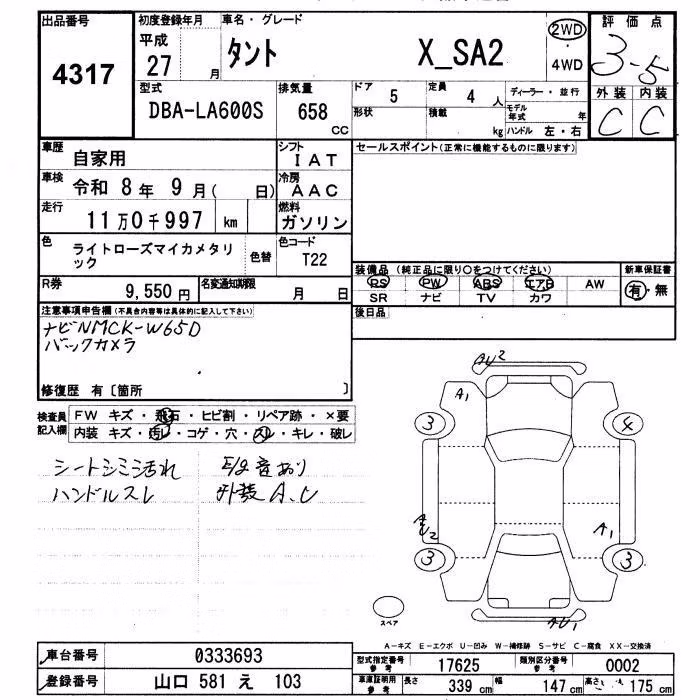 出品番号
4317
初度登録年月
平成
27 月
車名・グレード
タント X_SA2
2WD
4WD
評価点
3-5
外装 内装
C C
型式
DBA-LA600S
排気量
658
CC
ドア
5
定員
4 人
ディーラー・並行
形状
積載
kg
モデル年式 年
ハンドル 左・右
車歴
自家用
シフト
IAT
セールスポイント(正常に機能するものに限ります)
車検
令和 8年 9月( 日)
冷房
AAC
走行
11万0千997 km
燃料
ガソリン
色
ライトローズマイカメタリ
ック
色替
色コード
T22
装備品 (純正品に限り○をつけてください)
新車保証書
PS PW ABS エアB AW
有・無
SR ナビ TV カワ
R券
9,550円
名変通知期限
月 日
後日品
注意事項申告欄(不具合内容等は具体的に記入して下さい)
ナビNMCK-W65D
バックカメラ
修復歴 有〔箇所 〕
検査員
記入欄
FW キズ・飛石・ヒビ割・リペア跡・×要
内装 キズ・汚レ・コゲ・穴・スレ・キレ・破レ
シートシミ汚れ
ハンドルスレ
外装A.U
AU2
A1
3
4
A1
3
3
スペア
AU1
A-キズ E-エクボ U-凹み W-補修跡 S-サビ C-腐食 XX-交換済
車台番号
0333693
登録番号
山口 581 え 103
型式指定番号
参考
17625
類別区分番号
参考
0002
車庫証明用
参考
長さ 339 cm
幅 147 cm
高さ 175 cm